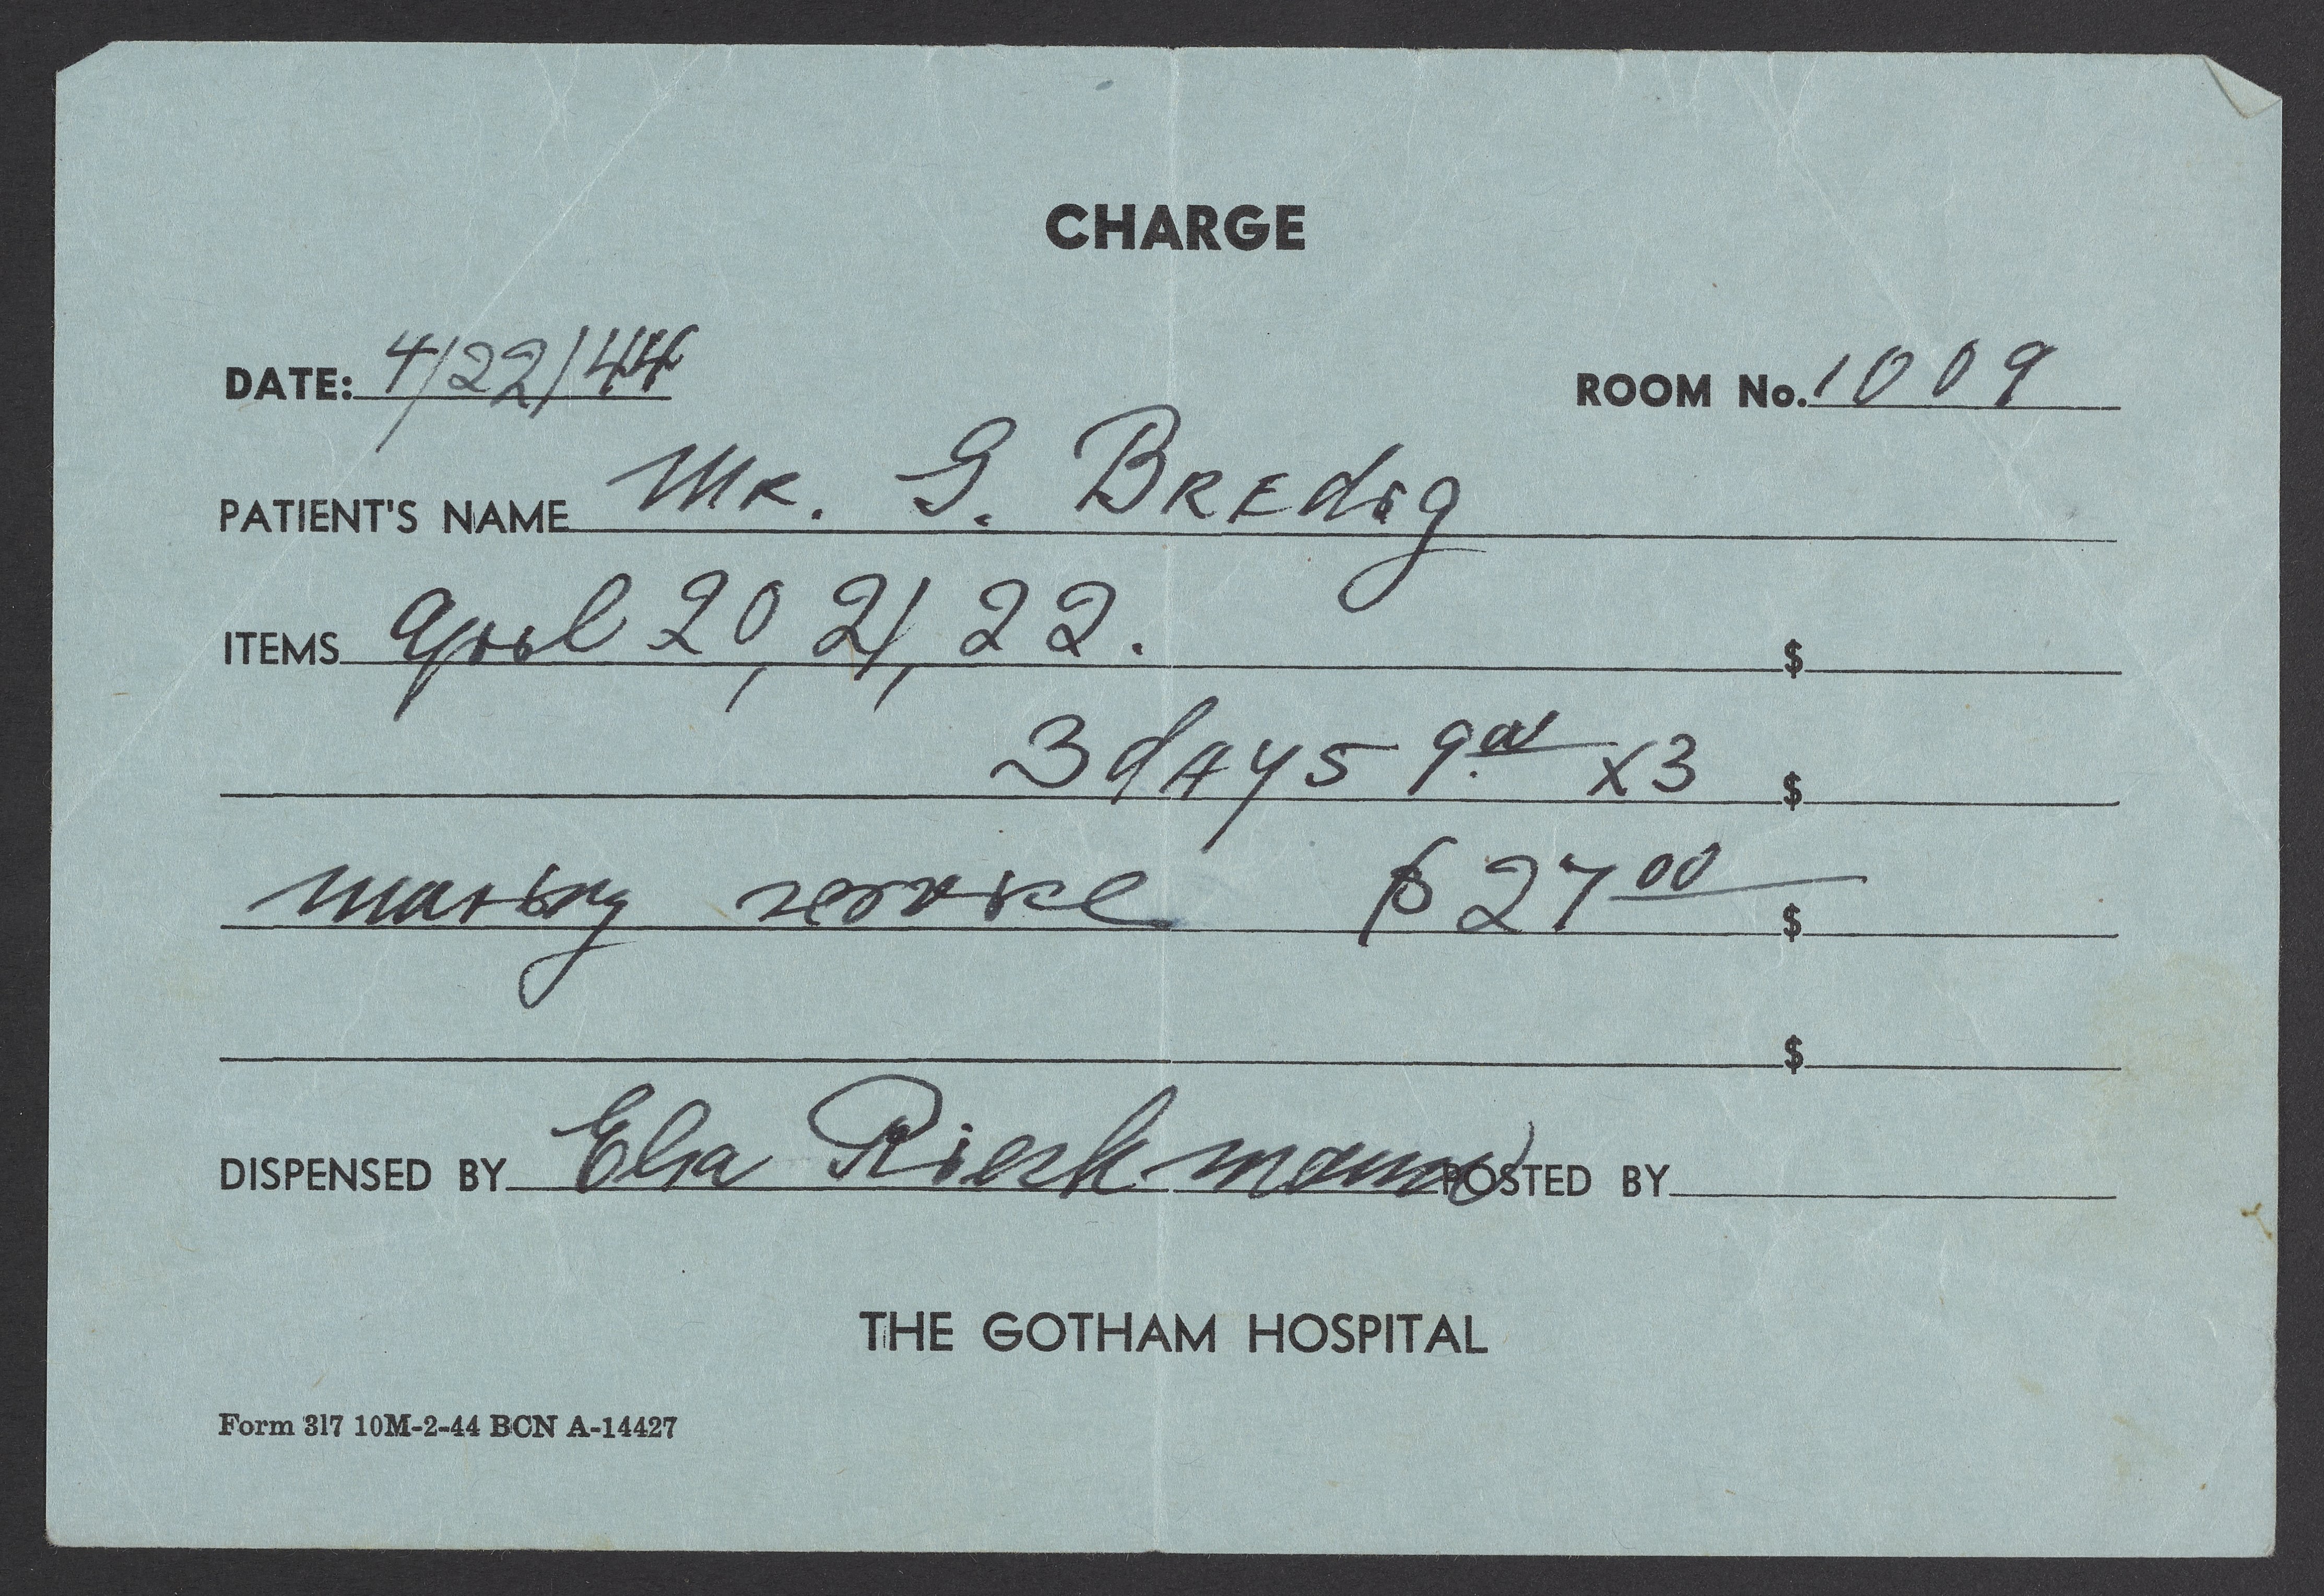 CHARGE
DATE: 4/22/44 ROOM No. 1009
PATIENT'S NAME Mr. G. Bredig
ITEMS April 20, 21, 22. $
3 days 9.00 x3 $
service $ 27 00 $
$
DISPENSED BY Elsa POSTED BY
THE GOTHAM HOSPITAL
Form 317 10M-2-44 BCN A-14427